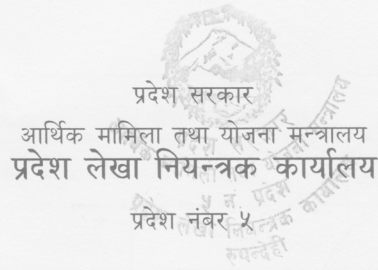 प्रदेश सरकार
आर्थिक मामिला तथा योजना मन्त्रालय
प्रदेश लेखा नियन्त्रक कार्यालय
प्रदेश नंबर ५
रुपन्देही